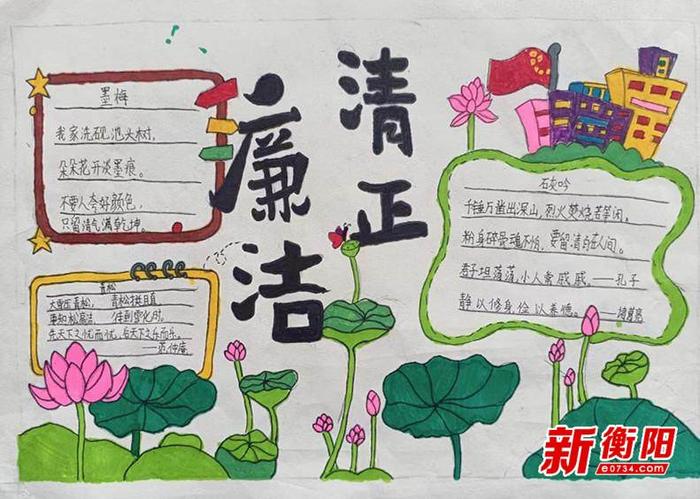 清正
廉洁
墨梅
我家洗砚池头树,
朵朵花开淡墨痕。
不要人夸好颜色,
只留清气满乾坤。
青松
大雪压青松, 青松挺且直
要知松高洁, 待到雪化时。
先天下之忧而忧,后天下之乐而乐。
——范仲淹
石灰吟
千锤万凿出深山,烈火焚烧若等闲。
粉身碎骨魂不怕, 要留清白在人间。
君子坦荡荡,小人常戚戚。——孔子
静以修身,俭以养德。——诸葛亮
新衡阳
e0734.com